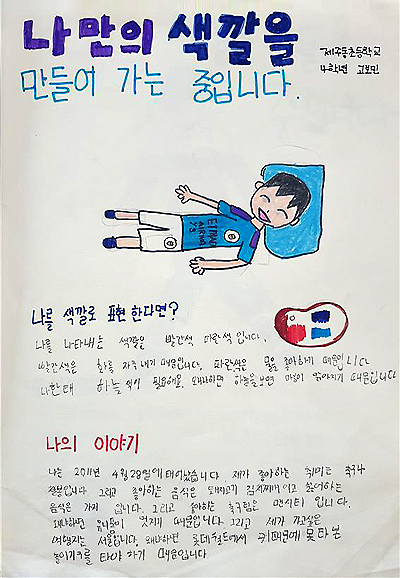 나만의 색깔을
만들어 가는 중입니다.
제주동초등학교
4학년 고보민
ETIHAD
AIRWAYS
나를 색깔로 표현 한다면?
나를 나타내는 색깔은 빨간색 파란색 입니다.
빨간색은 화를 자주내기 때문입니다. 파란색은 물을 좋아하기 때문입니다
나한테 하늘색이 필요해요. 왜냐하면 하늘을보면 마음이 편해지기 때문입니다
나의 이야기
나는 2011년 4월 28일에 태어났습니다 제가 좋아하는 취미는 축구
입니다 그리고 좋아하는 음식은 돼지고기 김치찌개 이고 싫어하는
음식은 가지 입니다. 그리고 좋아하는 축구팀은 맨시티 입니다.
왜냐하면 유니폼이 멋지기 때문입니다. 그리고 제가 가고싶은
여행지는 서울입니다. 왜냐하면 롯데월드에서 키때문에 못타본
놀이기구를 타야 하기 때문입니다.